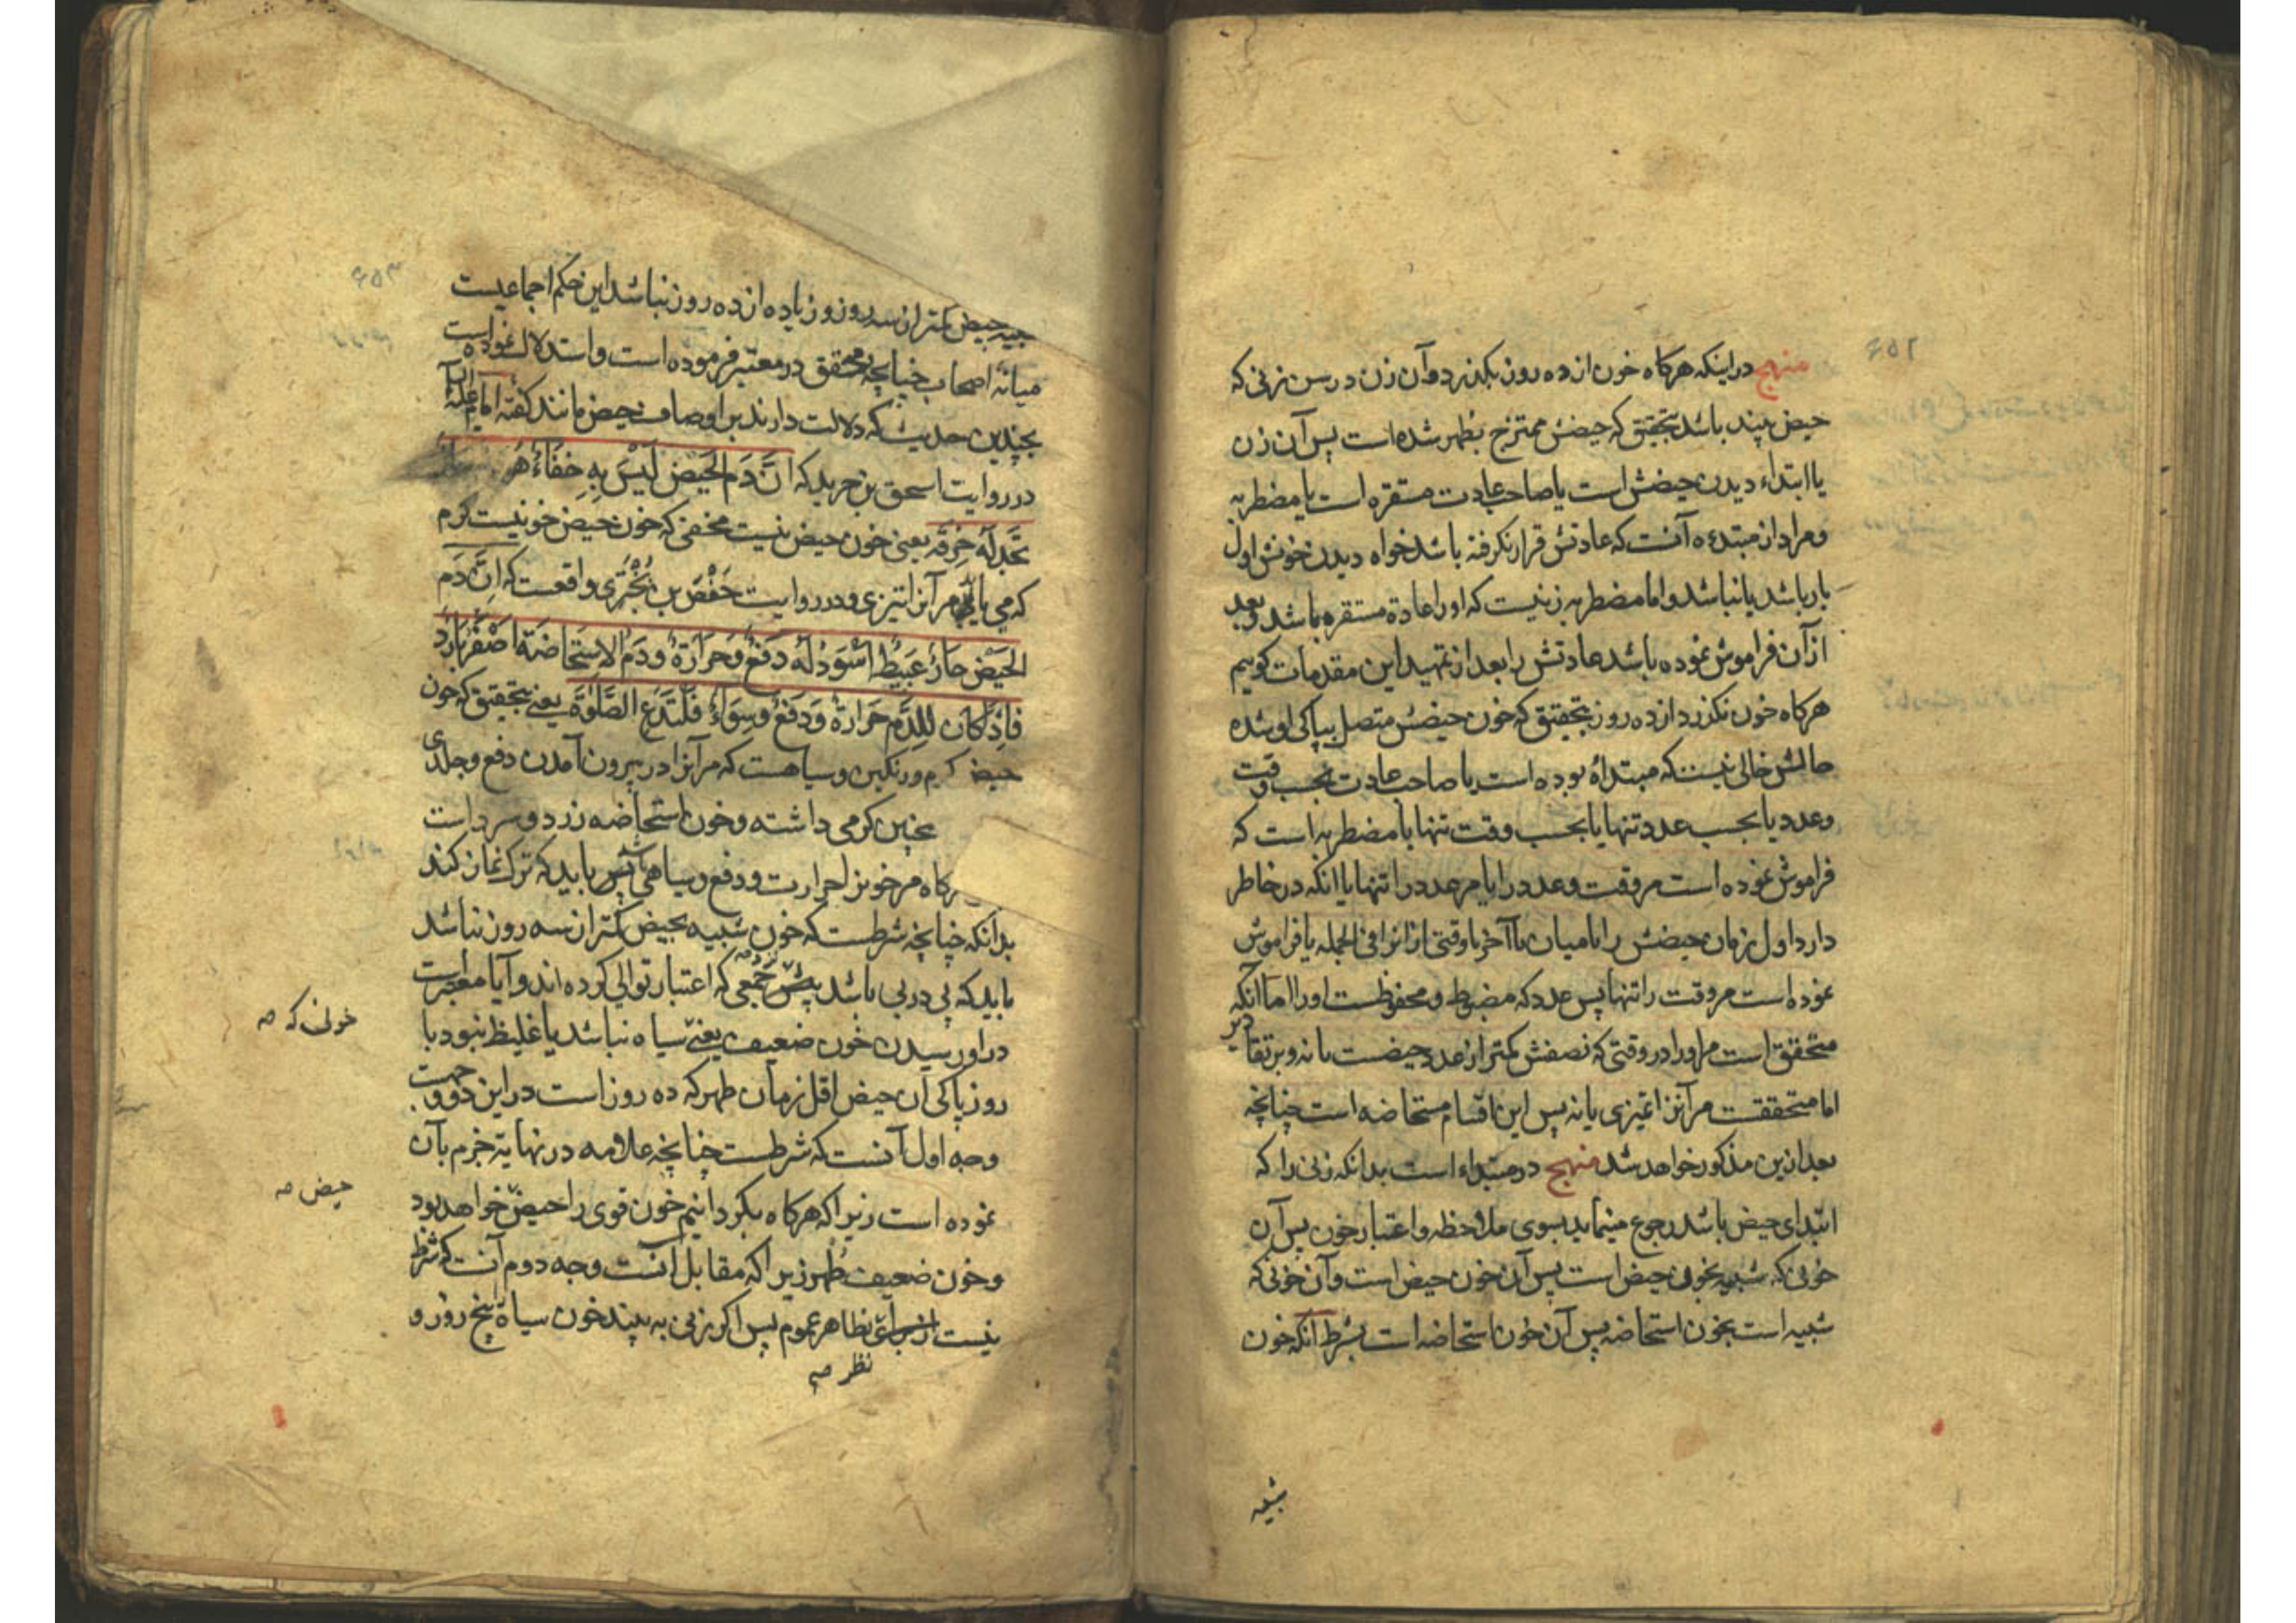 منهج در اینکه هرکاه خون از ده روز بکذرد و آن زن در سن زنی که
حیض بیند باشد بتحقیق که حیضش ممتزج بطهر شده است پس آن زن
یا ابتداء دیدن حیضش است یا صاحب عادت مستقره است یا مضطربه
و مراد از مبتدءه آنست که عادتش قرار نکرفته باشد خواه دیدن خونش اول
بار باشد یا نباشد و اما مضطربه زنیست که او را عادة مستقره باشد و بعد
از آن فراموش نموده باشد عادتش را بعد از تمهید این مقدمات کوییم
هرکاه خون بکذرد از ده روز بتحقیق که خون حیضش متصل بپاکی او شده
حالش خالی نیست که مبتدأه بوده است یا صاحب عادت بحسب وقت
و عدد یا بحسب عدد تنها یا بحسب وقت تنها یا مضطربه است که
فراموش نموده است مر وقت و عدد را یا مر عدد را تنها یا انکه در خاطر
دارد اول زمان حیضش را یا میان یا آخر یا وقتی از انرا فی الجمله یا فراموش
نموده است مر وقت را تنها پس عدد که مضبوط و محفوظست او را اما انکه
متحققق است مر او را در وقتی که نصفش کمتر از عدد حیضست یا نه و بر تقادیر
اما متحققت مر آنزا تمیزی یا نه پس این اقسام مستحاضه است چنانچه
بعد ازین مذکور خواهد شد منهج در مبتداء است بدانکه زنی را که
ابتدای حیض باشد رجوع مینماید بسوی ملاحظه و اعتبار خون پس آن
خونی که شبیه بخون حیض است پس آن خون حیض است و آن خونی که
شبیه است بخون استحاضه پس آن خون استحاضه است بشرط آنکه خون
شبیه
شبیه بحیض کمتر از سه روز و زیاده از ده روز نباشد این حکم اجماعیست
میانه اصحاب چنانچه محقق در معتبر فرموده است و استدلال نموده است
بچندین حدیث که دلالت دارند بر اوصاف حیض مانند کفته امام علیه
در روایت اسحق بن جریر که انَّ دَمَ الحَیض لَیْسَ بِهِ خفَاءُ هُوَ
تَجِدُ لَهُ حُرقَة یعنی خون حیض نیست مخفی که خون حیض خونیست کرم
که می یابی مر آنرا تیزی و در روایت حَفْصَ بن بُخْتَری واقعست که اِنَّ دَمَ
الحَیْضِ حَارُ عَبیطُ اسْوَدُ لَهُ دَفعُ وَحَرَارَةُ وَدَمُ الاِستَحَاضَة اَصْفَرُ بَارِدُ
فَاِذَا کَان لِلدَّمِ حَرَارةُ وَدَفعُ وَسِوَادُ فَلتَدَعِ الصَّلوةَ یعنی بتحقیق که خون
حیض کرم و رنکین و سیاهست که مر آنرا در بیرون آمدن دفع و جلدی
کرمی داشته و خون استحاضه زرد و سرد است
هرکاه مر خونرا حرارت و دفع و سیاهی باشد پس باید که ترک نماز کند
بدانکه چنانچه شرطست که خون شبیه بحیض کمتر از سه روز نباشد
باید که پی در پی باشد پیش جمعی که اعتبار توالی کرده اند و آیا معتبرست
در او رسیدن خون ضعیف یعنی سیاه نباشد یا غلیظ نبود با
روز پاکی آن حیض اقل زمان طهر که ده روز است در این دو وجهست
وجه اول آنست که شرطست چنانچه علامه در نهایة جزم بآن
نموده است زیرا که هرکاه بکردانیم خون قوی را حیض خواهد بود
و خون ضعیف طهر زیرا که مقابل آنست وجه دوم آنست که شرط
نیست بظاهر عموم پس اکر زنی به بیند خون سیاه پنج روز و
نظر صه
خونی که صه
حیض صه